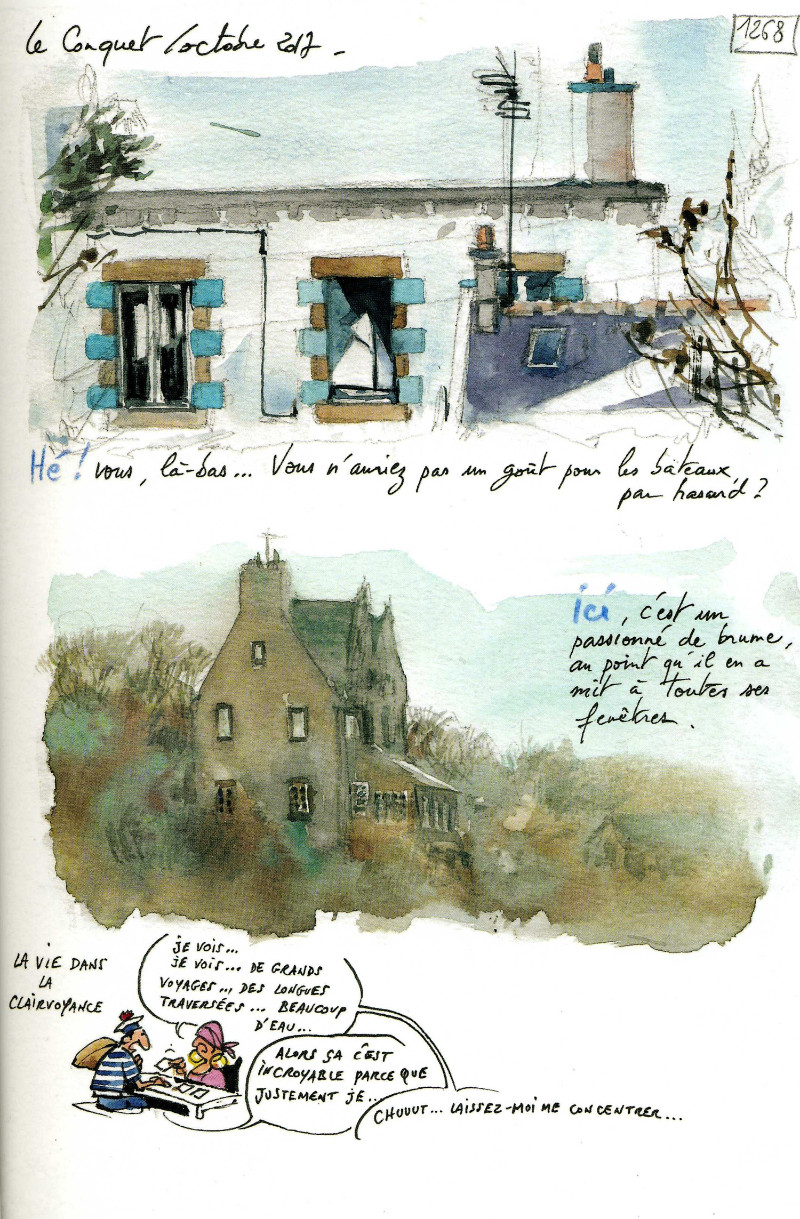 le Conquet / octobre 2017 -
1268
Hé! vous, là-bas... Vous n'auriez pas un goût pour les bâteaux,
par hasard ?
ici, c'est un
passionné de brume,
au point qu'il en a
mit à toutes ses
fenêtres.
LA VIE DANS
LA
CLAIRVOYANCE
JE VOIS...
JE VOIS... DE GRANDS
VOYAGES... DES LONGUES
TRAVERSÉES... BEAUCOUP
D'EAU...
ALORS ÇA C'EST
INCROYABLE PARCE QUE
JUSTEMENT JE...
CHUUUT... LAISSEZ-MOI ME CONCENTRER...